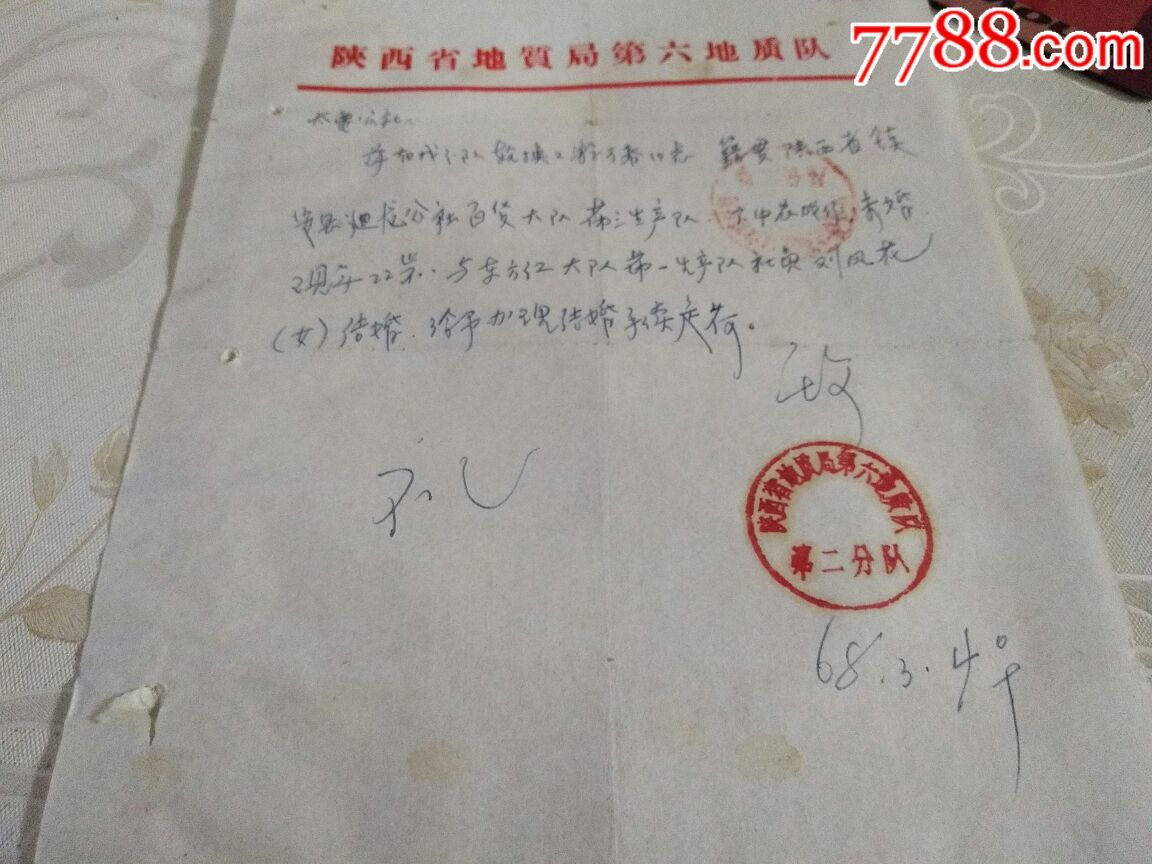 7788.com
陕西省地質局第六地质队
公社
队 籍贯陕西省镇
公社百货大队第三生产队 中农成份,未婚
现年22岁.与东方红大队第一生产队社员刘凤花
(女)结婚.给予办理结婚手续是荷。
致
礼
陕西省地质局第六地质队
第二分队
68.3.4号